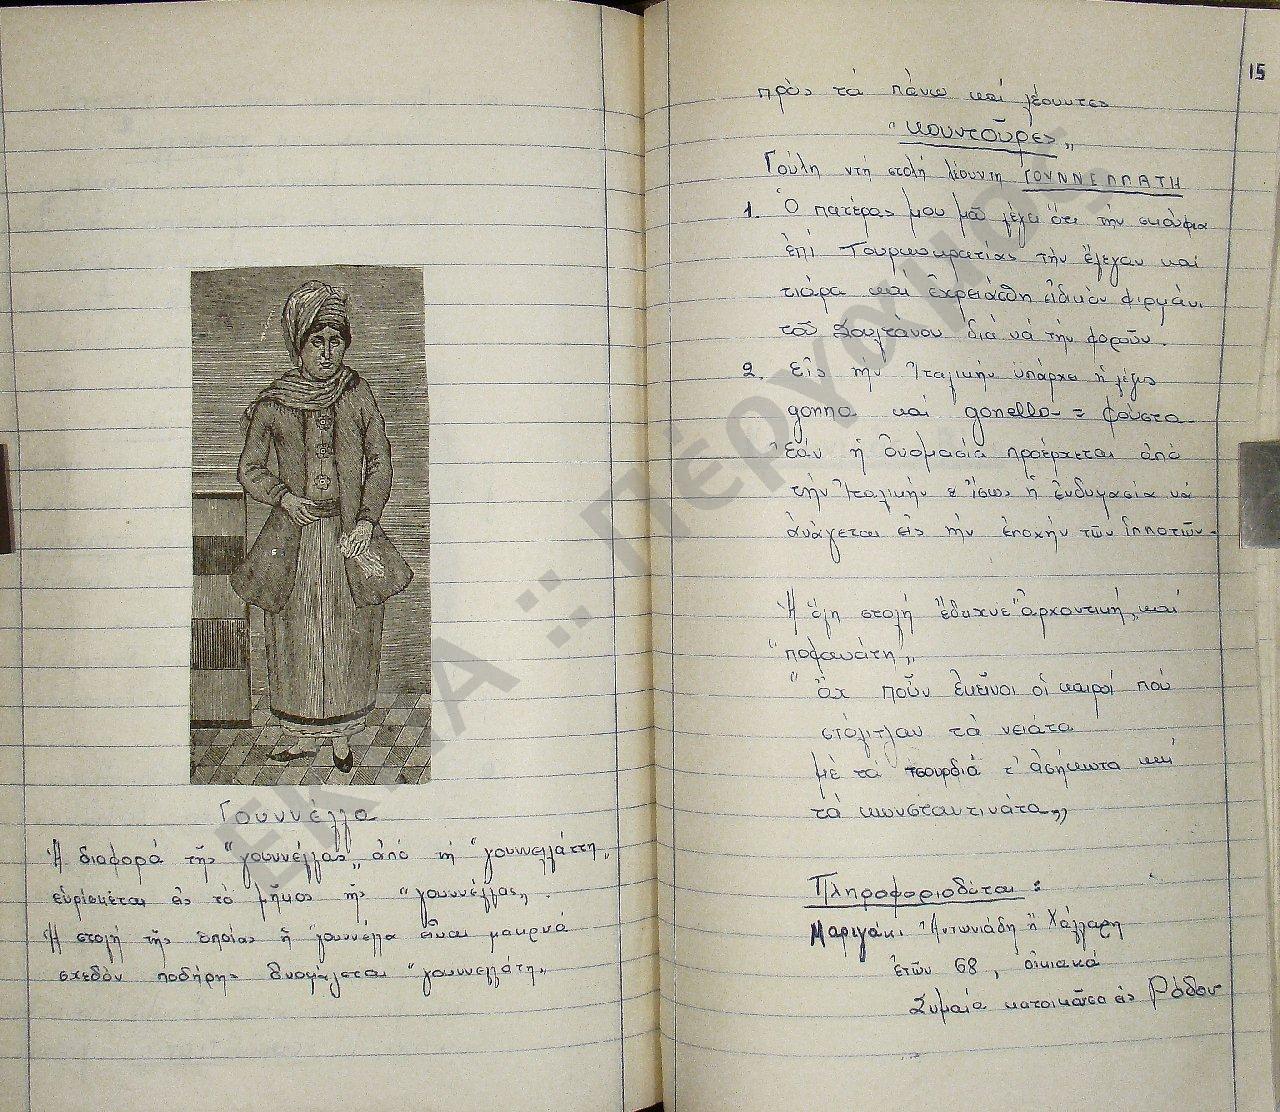 Γουννέλλα
Ἡ διαφορά τῆς "γουννέλλας„ ἀπό τή "γουννελλάττη„
εὑρίσκεται εἰς τὸ μῆκος τῆς "γουννέλλας„.
Ἡ στολή τῆς ὁποίας ἡ γουννέλα εἶναι μακρυά
σχεδόν ποδήρης ὀνομάζεται "γουννελλάτη„
15
πρὸς τά πάνω καί λέουντες
"κουντοῦρες„
Γούλη ντή στολή λέουντη ΓΟΥΝΝΕΛΛΑΤΗ
1. Ὁ πατέρας μου μᾶ λέγει ὅτι τήν σκούφια
ἐπί Τουρκοκρατίας τήν ἔλεγαν καί
τιάρα καί ἐχρειάσθη εἰδικὸν φιρμάνι
τοῦ Σουλτάνου διά νά τήν φοροῦν.
2. Εἰς τήν Ἰταλικήν ὑπάρχει ἡ λέξις
gonna καί gonella = φούστα
Ἐάν ἡ ὀνομασία προέρχεται ἀπό
τήν Ἰταλικήν ἴσως ἡ ἐνδυμασία νά
ἀνάγεται εἰς τήν ἐποχήν τῶν Ἱπποτῶν.
Ἡ στολή "ἀρχοντική„ καί
"Ἄχ ποῦν ἐκεῖνοι οἱ καιροί πού
στόλιζαν τά νειάτα
μέ τά τσουρδιά τ' ἀσήκωτα καί
τά κωνσταντινάτα„
Πληροφοριοδόται:
Μαριγάκι Ἀντωνιάδη ἤ Χάλλαρη
ἐτῶν 68, οἰκιακά
Συμαία κατοικοῦσα εἰς Ρόδον
ΕΚΠΑ :: Πέργαμος